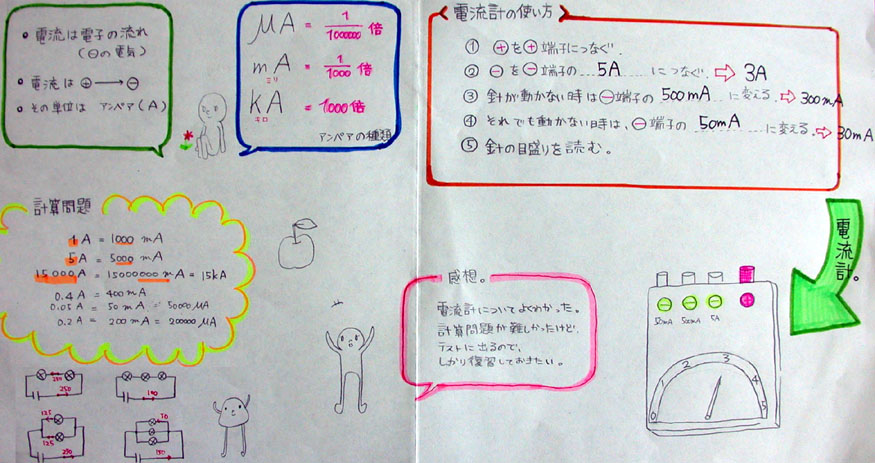 • 電流は電子の流れ
(⊖の電気)
• 電流は ⊕→⊖
• その単位は アンペア(A)
μA = 1/1000000 倍
mA = 1/1000 倍
ミリ
kA = 1000倍
キロ
アンペアの種類
電流計の使い方
① ⊕を⊕端子につなぐ.
② ⊖を⊖端子の 5A につなぐ. ⇨ 3A
③ 針が動かない時は⊖端子の 500mA に変える. ⇨ 300mA
④ それでも動かない時は、⊖端子の 50mA に変える. ⇨ 30mA
⑤ 針の目盛りを読む。
計算問題
1A = 1000 mA
5A = 5000 mA
15000A = 15000000 mA = 15kA
0.4A = 400mA
0.05A = 50mA = 50000μA
0.2A = 200mA = 200000μA
250
250
150
125
125
250
150
感想。
電流計についてよくわかった。
計算問題が難しかったけど、
テストに出るので、
しっかり復習しておきたい。
電流計。
⊖ ⊖ ⊖ ⊕
50mA 500mA 5A
0 1 2 3 4 5